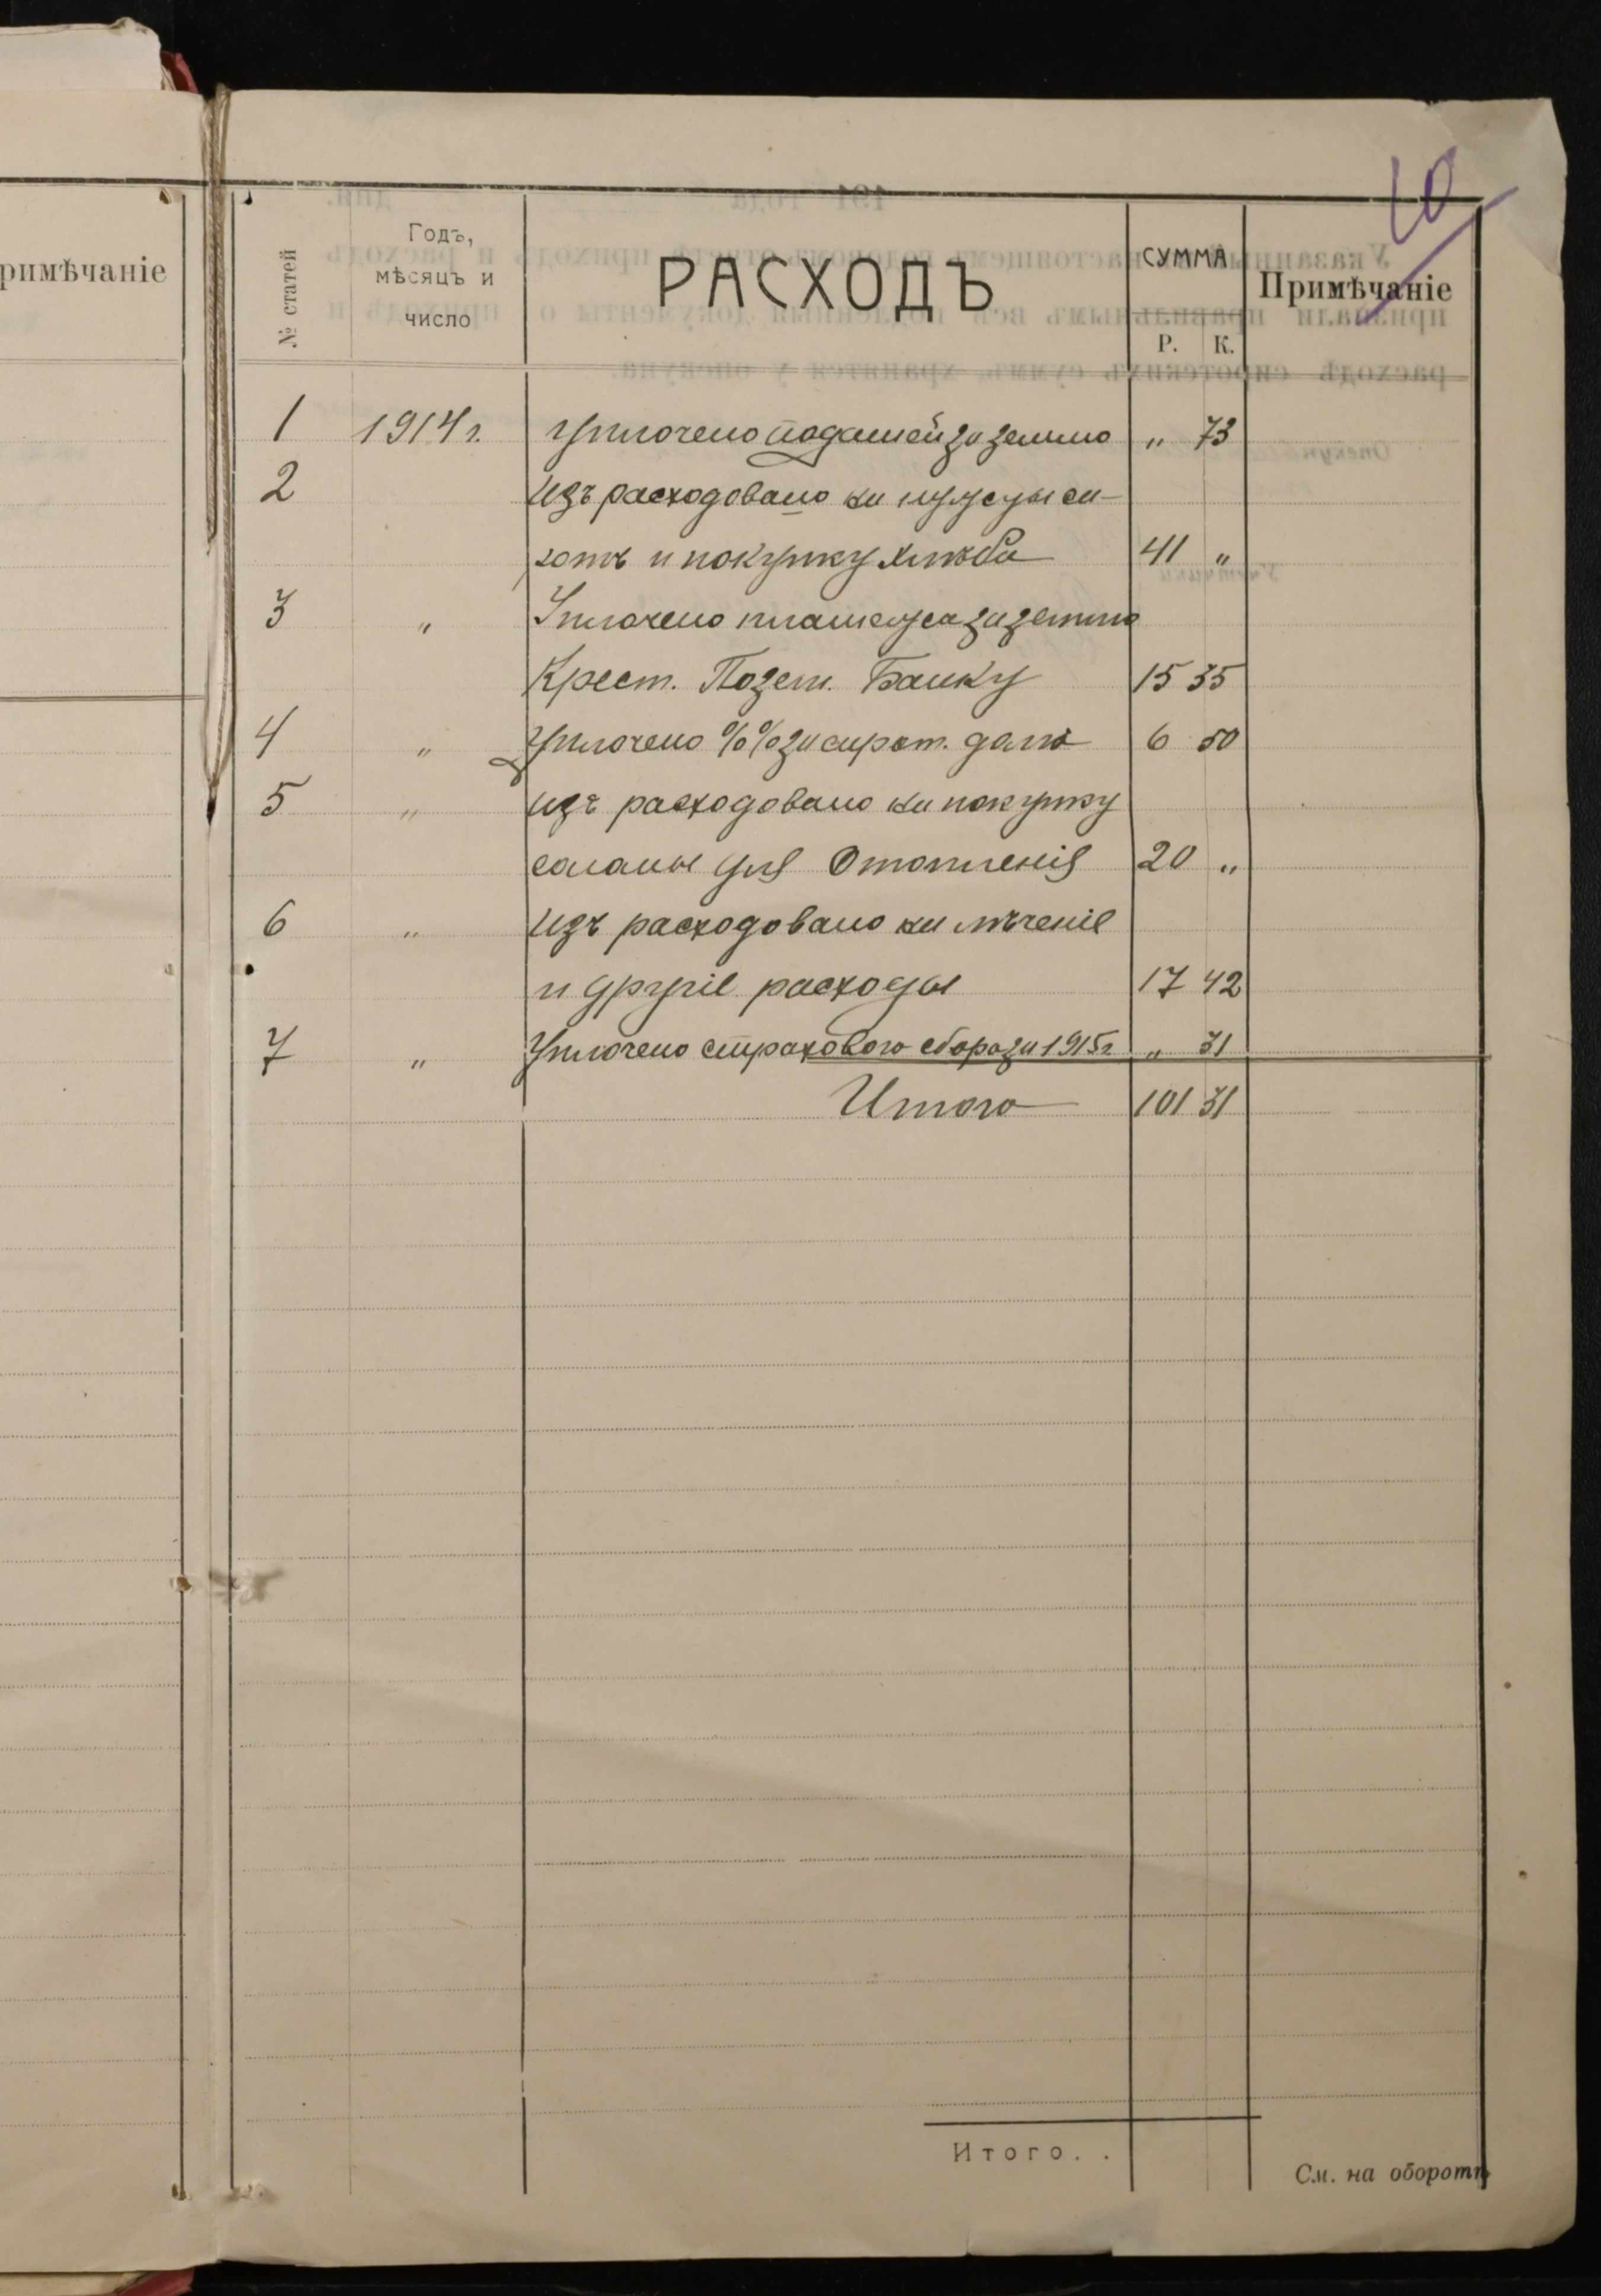 римѣчаніе
10
№ статей
Годъ,
мѣсяцъ и
число
РАСХОДЪ
СУММА
Р. К.
Примѣчаніе
1 1914 г. Уплочено податей за землю „ 73
2 Изъ расходовано на нужды си-
ротъ и покупку хлѣба 41 „
3 „ Уплочено платежа за землю
Крест. Позем. Банку 15 35
4 „ Уплочено %% за сирот. долю 6 50
5 „ Изъ расходовано на покупку
соломы для Отопленія 20 „
6 „ Изъ расходовано на лѣченіе
и другіе расходы 17 42
7 „ Уплочено страхового сбора за 1915 г „ 31
Итого 101 31
Итого. .
См. на оборотѣ